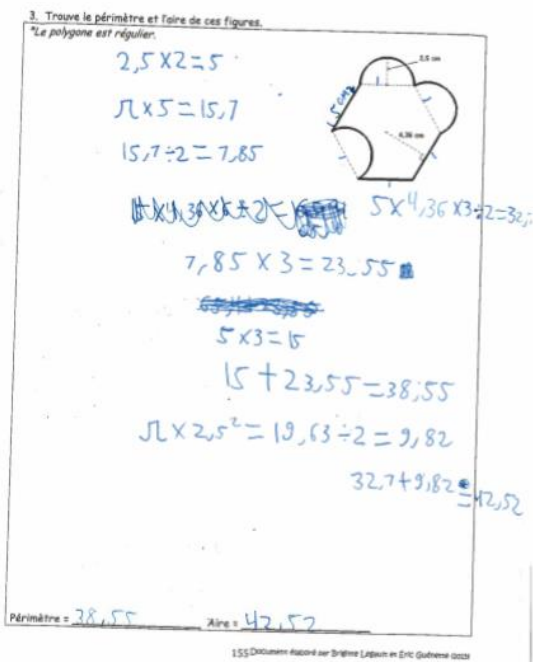 3. Trouve le périmètre et l'aire de ces figures.
*Le polygone est régulier.
2,5 cm
2,5 x 2 = 5
5 cm
π x 5 = 15,7
4,36 cm
15,7 ÷ 2 = 7,85
5 x 4,36 x 3 ÷ 2 = 32,
7,85 x 3 = 23,55
5 x 3 = 15
15 + 23,55 = 38,55
π x 2,5² = 19,63 ÷ 2 = 9,82
32,7 + 9,82 = 42,52
Périmètre = 38,55 Aire = 42,52
155 Document élaboré par Brigitte Legault et Éric